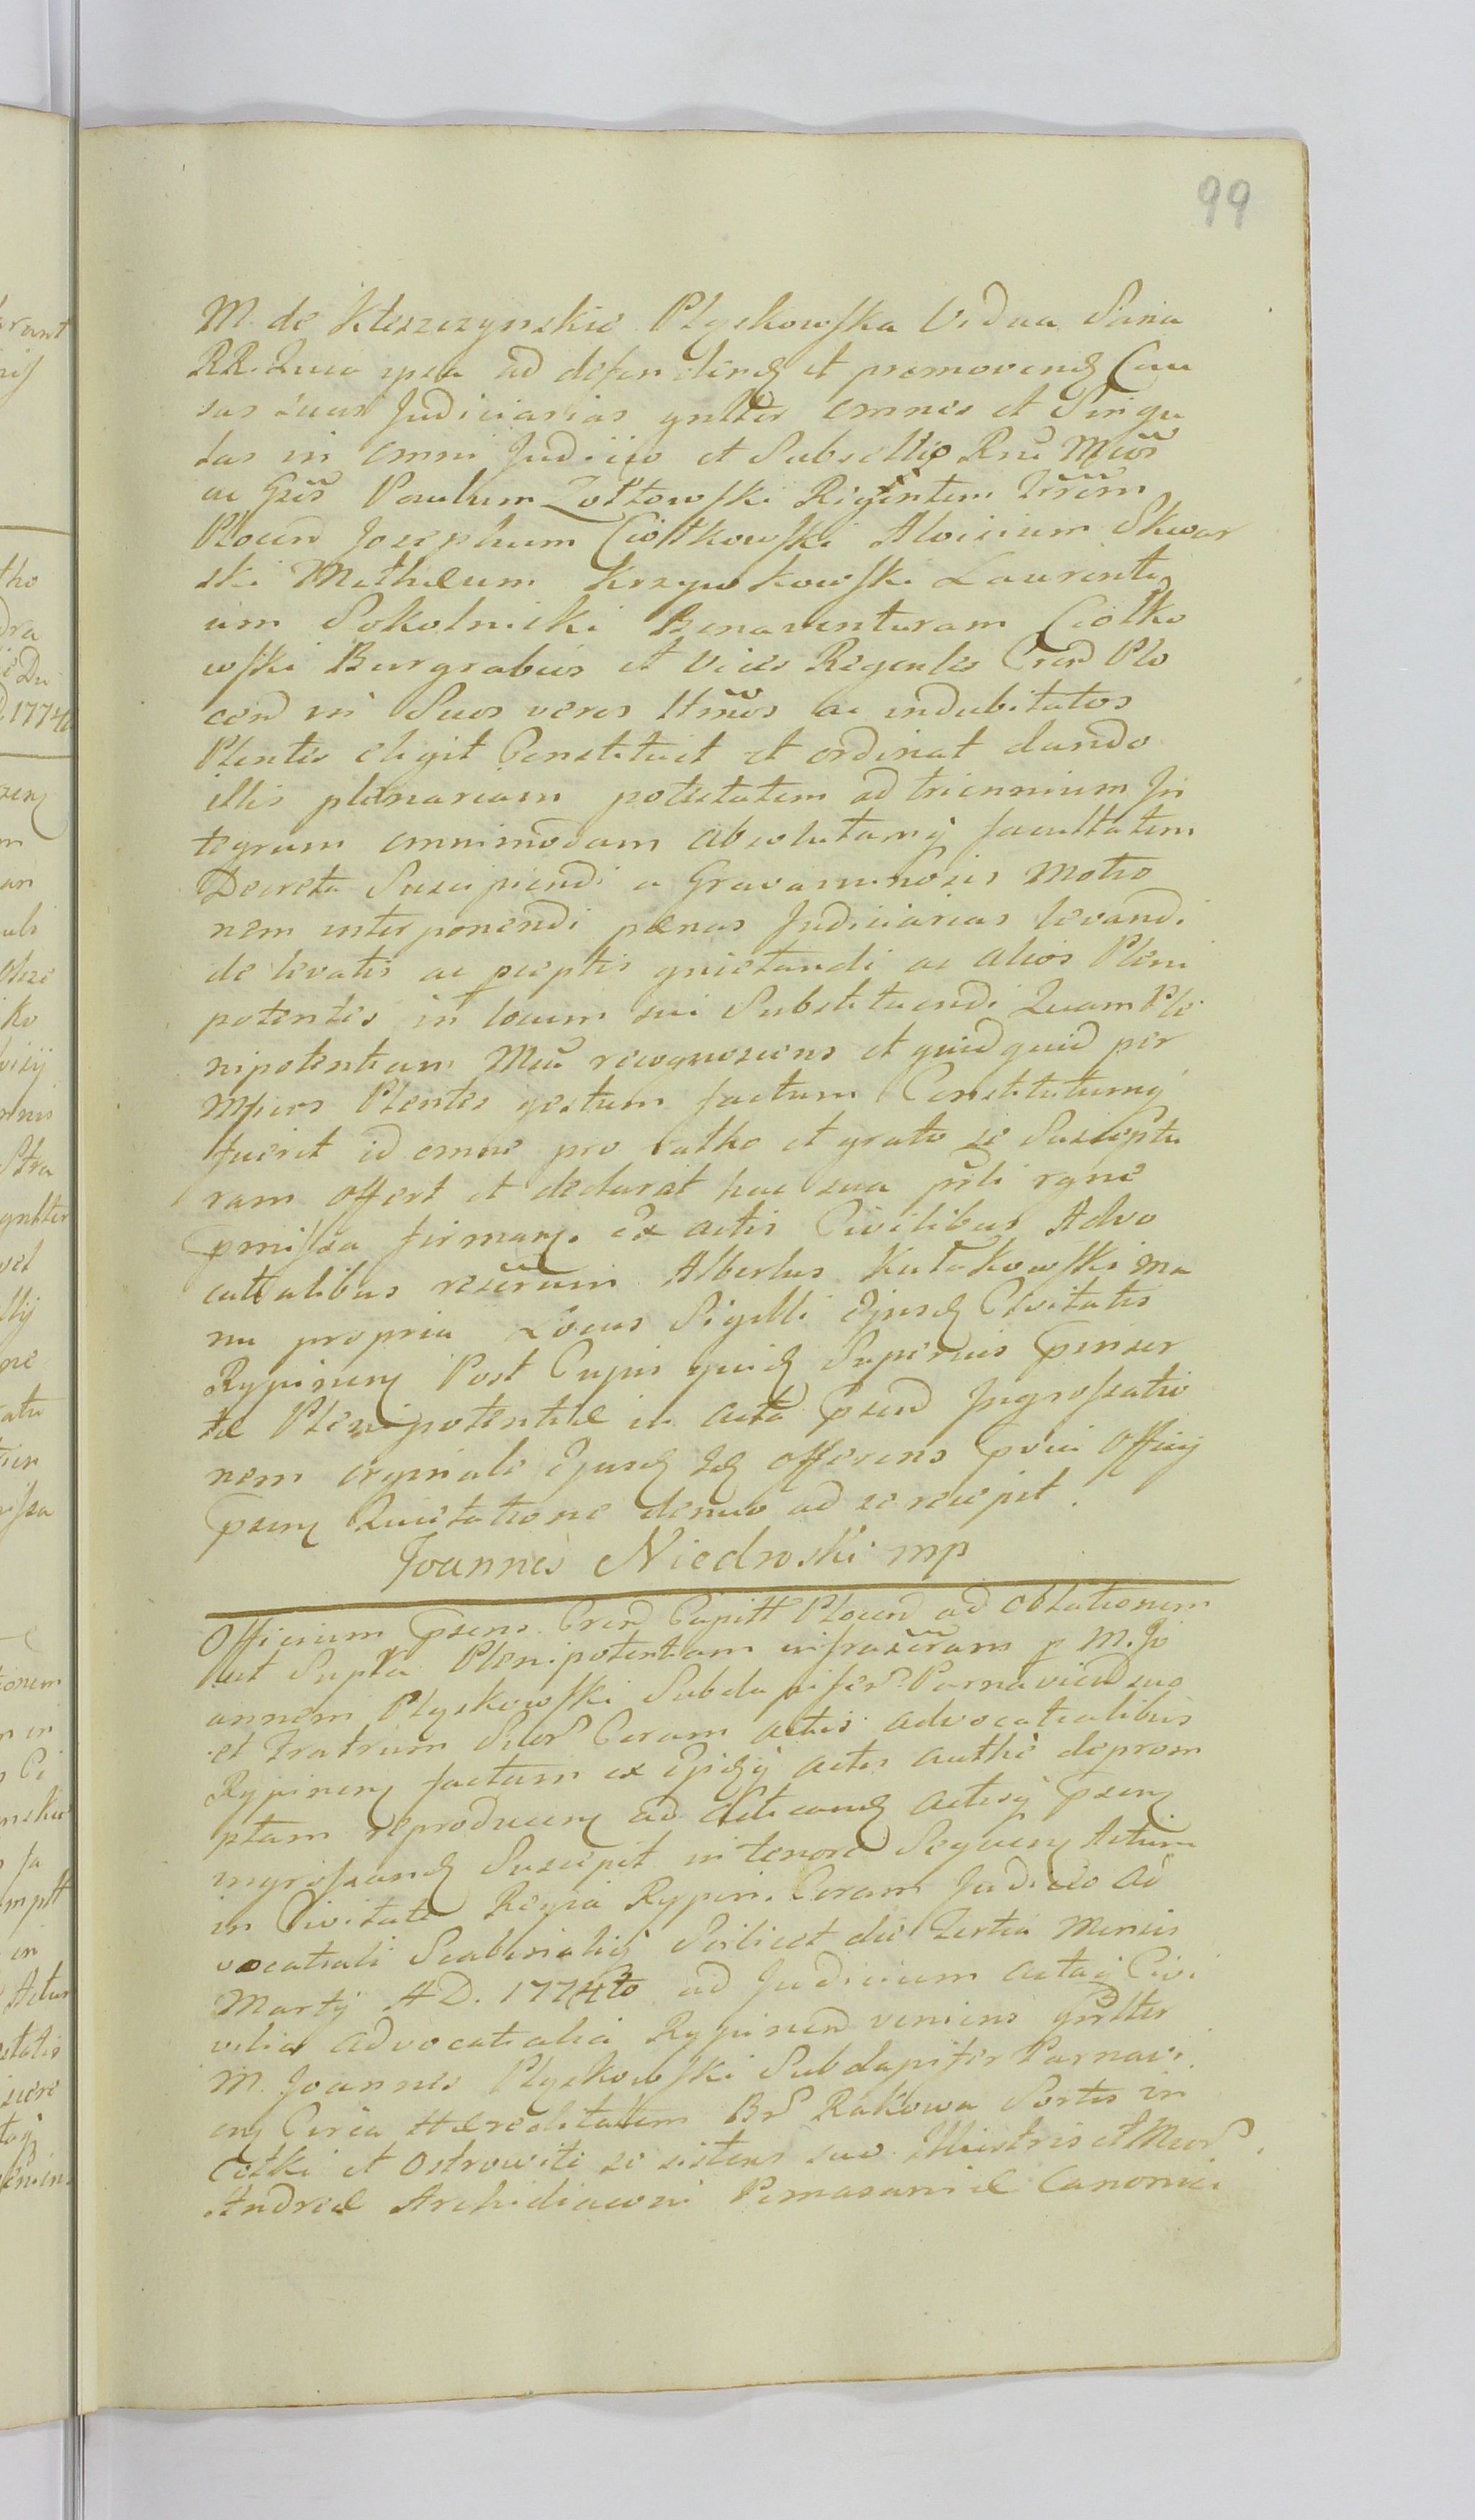 99
M. de Kleszczynskie Plyskowska Vidua Sana
RR. Quia ipsa ad defendend et promovend Cau
sas suas Judiciarias gnlter omnes et Singu
las in omni Judicio et Subsellijo Rni Mcos
ac Gsos Paulum Zołtowski Rigentem Trrem
Plocen Josephum Ciołkowski Aloisium Skwar
ski Mathæum Krzywkowski Laurenti
um Sokolnicki Bonawenturam Ciołko
wski Burgrabios et Vices Regentes Cren Plo
cen vi Suos veros Ltmos ac indubitatos
Plentes eligit Constituit et ordinat dando
illis plenariam potestatem ad triennium In
tegrum omnimodam absolutamq facultatem
Decreta Suscipiendi a Gravaminosis Motio
nem interponendi pænas Judiciarias levandi
de levatis ac pceptis quietandi ac alios Pleni
potentes in locum sui Substituendi Quam Ple
nipotentiam Mca recognoscens et quidquid per
mpsos Plentes gestum factum Constitutumq
fuerit id omne pro ratho et grato se Susceptu
ram offert et declarat hac sua prsti rgne
pmissa firman. Ex actis Civilibus Advo
catialibus rescrum Albertus Kutakowski ma
nu propria Locus Sigilli Ejusd Civitatis
Rypinen Post Cujus quid Superius pinser
tæ Plenipotentiæ in acta psen Ingrossatio
nem orginale Ejusd Id offerens pvia Officij
psen Quietatione denuo ad se recepit.
Joannes Niedroski mp
Officium psens Cren Capitt Plocen ad oblationem
ut Supra Plenipotentiam infrascram p M. Jo
annem Plyskowski Subdapifer Parnavien suo
et Fratrum Suor Coram actis advocatialibus
Rypinen factum ex Ejsdq actis authe deprom
ptam reproducen ad acticand actisq psen
ingrossand Suscepit in tenore Sequen Actum
in Civitate Regia Rypin. Coram Judicio ad
vocatiali Scabinaliq Scilicet die Tertia Mensis
Martij A D. 1774to ad Judicium actaq Civi
vilia advocatialia Rypinen veniens gnlter
M. Joannes Plyskowski Subdapifer Parnavi
en Circa Hæreditatem Br Rakowa Sortis in
Cetki et Ostrowite se sistens suo Illustris et Mcor
Andreæ Archidiaconi Pomasaniæ Canonici